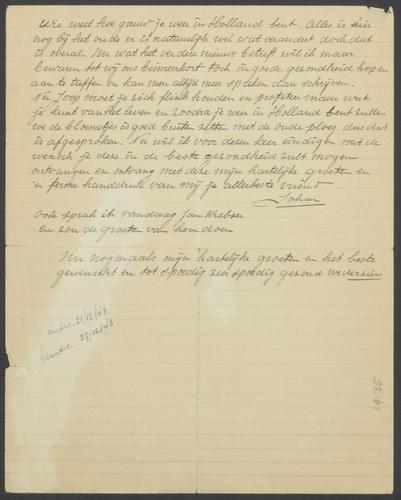 wie weet hoe gauw je weer in Holland bent. Alles is hier
nog bij het oude er is natuurlijk wel wat verandert doch dat
is overal. Nu wat het verder nieuws betreft wil ik maar
bewaren tot wij ons binnenkort toch in goede gezondheid hopen
aan te treffen en kan men altijd meer spreken dan schrijven.
Nu Joop moet je zich flink houden en profiteer maar wat
je kunt van het leven en zoodra je weer in Holland bent zullen
we de bloemetjes goed buiten zetten met de oude ploeg dus dat
is afgesproken. Nu wil ik voor dezen keer eindigen met de
wensch je deze in de beste gezondheid zult mogen
ontvangen en ontvang met deze mijn hartelijke groeten en
'n ferme handdruk van mij je allerbeste vriend
Johan
Ook sprak ik vandaag Jan
en zou de groeten van hem doen
Nu nogmaals mijn hartelijke groeten en het beste
gewenscht en tot spoedig zeer spoedig gezond wederzien
21/12/43
27/12/43
19:35